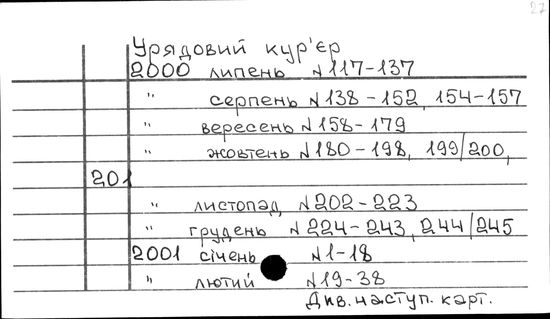 27
Урядовий кур'єр
2000 липень N117-137
" серпень N138-152, 154-157
" вересень N158-179
" жовтень N180-198, 199/200,
201
" листопад N202-223
" грудень N224-243, 244/245
2001 січень N1-18
" лютий N19-38
Див. наступ. карт.